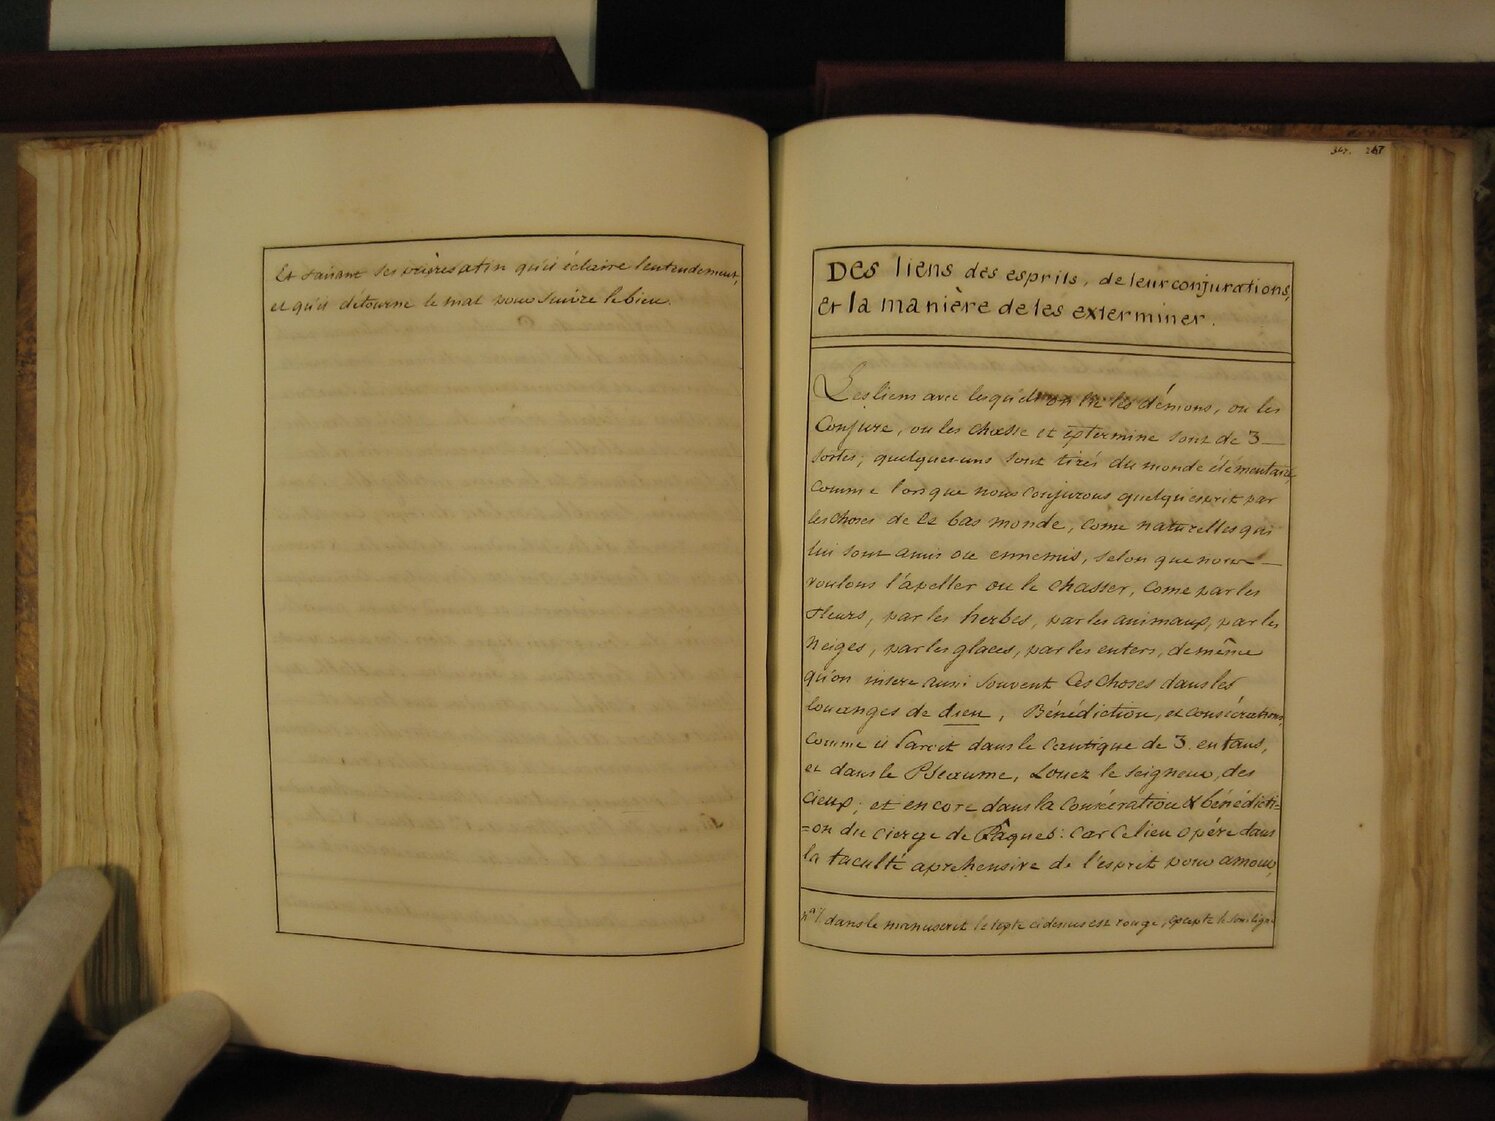 Et faisant ses prières afin qu'il éclaire l'entendement,
et qu'il détourne le mal pour suivre le bien.
347. 247
Des liens des esprits, de leur conjurations,
et la manière de les exterminer.
Les liens avec lesquels on lie les démons, ou les
Conjure, ou les chasse et extermine sont de 3
sortes; quelques uns sont tirés du monde élémentaire,
comme lorsque nous conjurons quelqu'esprit par
les choses de ce bas monde, come naturelles qui
lui sont amis ou ennemis, selon que nous
voulons l'apeller ou le chasser, come par les
fleurs, par les herbes, par les animaux, par les
Neiges, par les glaces, par les enfers, de même
qu'on insere aussi souvent ces choses dans les
louanges de dieu, Bénédiction, et consécrations,
comme il paroit dans le cantique de 3. enfans,
et dans le Pseaume, Louez le seigneur, des
cieux; et encore dans la consécration & bénédicti=
=on du cierge de Pâques: car ce lien opére dans
la faculté aprehensive de l'esprit pour amour,
Nª/. dans le manuscrit le texte ci dessus est rouge, excepté le souligné